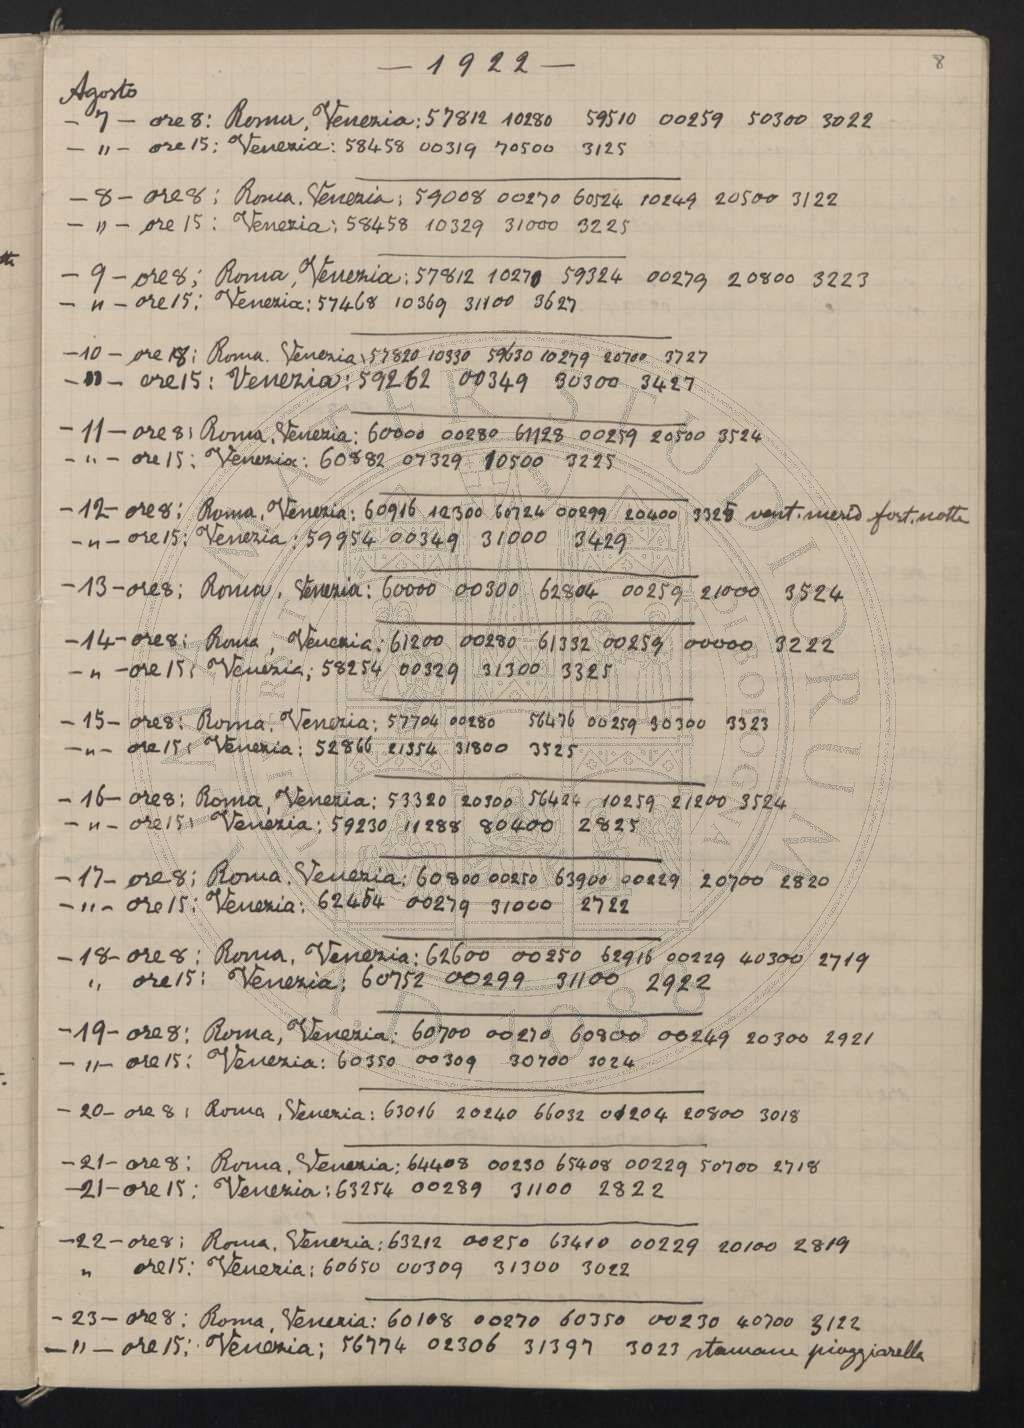 — 1922 —
8
Agosto
— 7 — ore 8: Roma, Venezia: 57812 10280 59510 00259 50300 3022
— " — ore 15: Venezia: 58458 00319 70500 3125
— 8 — ore 8: Roma, Venezia: 59008 00270 60524 10249 20500 3122
— " — ore 15: Venezia: 58458 10329 31000 3225
— 9 — ore 8: Roma, Venezia: 57812 10270 59324 00279 20800 3223
— " — ore 15: Venezia: 57468 10369 31100 3627
— 10 — ore 8: Roma. Venezia: 57820 10330 59630 10279 20700 3727
— " — ore 15: Venezia: 59262 00349 30300 3427
— 11 — ore 8: Roma, Venezia: 60000 00280 61128 00259 20500 3524
— " — ore 15: Venezia: 60882 07329 10500 3225
— 12 — ore 8: Roma, Venezia: 60916 12300 60724 00299 20400 3325 vent. merid fort. notte
— " — ore 15: Venezia: 59954 00349 31000 3429
— 13 — ore 8: Roma, Venezia: 60000 00300 62804 00259 21000 3524
— 14 — ore 8: Roma, Venezia: 61200 00280 61332 00259 00000 3222
— " — ore 15: Venezia: 58254 00329 31300 3325
— 15 — ore 8: Roma, Venezia: 57704 00280 56476 00259 30300 3323
— " — ore 15: Venezia: 52866 21354 31800 3525
— 16 — ore 8: Roma, Venezia: 53320 20300 56424 10259 21200 3524
— " — ore 15: Venezia: 59230 11288 80400 2825
— 17 — ore 8: Roma. Venezia: 60800 00250 63900 00229 20700 2820
— " — ore 15: Venezia: 62454 00279 31000 2722
— 18 — ore 8: Roma, Venezia: 62600 00250 62916 00229 40300 2719
" ore 15: Venezia: 60752 00299 31100 2922
— 19 — ore 8: Roma, Venezia: 60700 00270 60800 00249 20300 2921
— " — ore 15: Venezia: 60350 00309 30700 3024
— 20 — ore 8: Roma, Venezia: 63016 20240 66032 01204 20800 3018
— 21 — ore 8: Roma, Venezia: 64408 00230 65408 00229 50700 2718
— 21 — ore 15: Venezia: 63254 00289 31100 2822
— 22 — ore 8: Roma. Venezia: 63212 00250 63410 00229 20100 2819
" ore 15: Venezia: 60650 00309 31300 3022
— 23 — ore 8: Roma, Venezia: 60108 00270 60350 00230 40700 3122
— " — ore 15: Venezia: 56774 02306 31397 3023 stamane pioggiarella